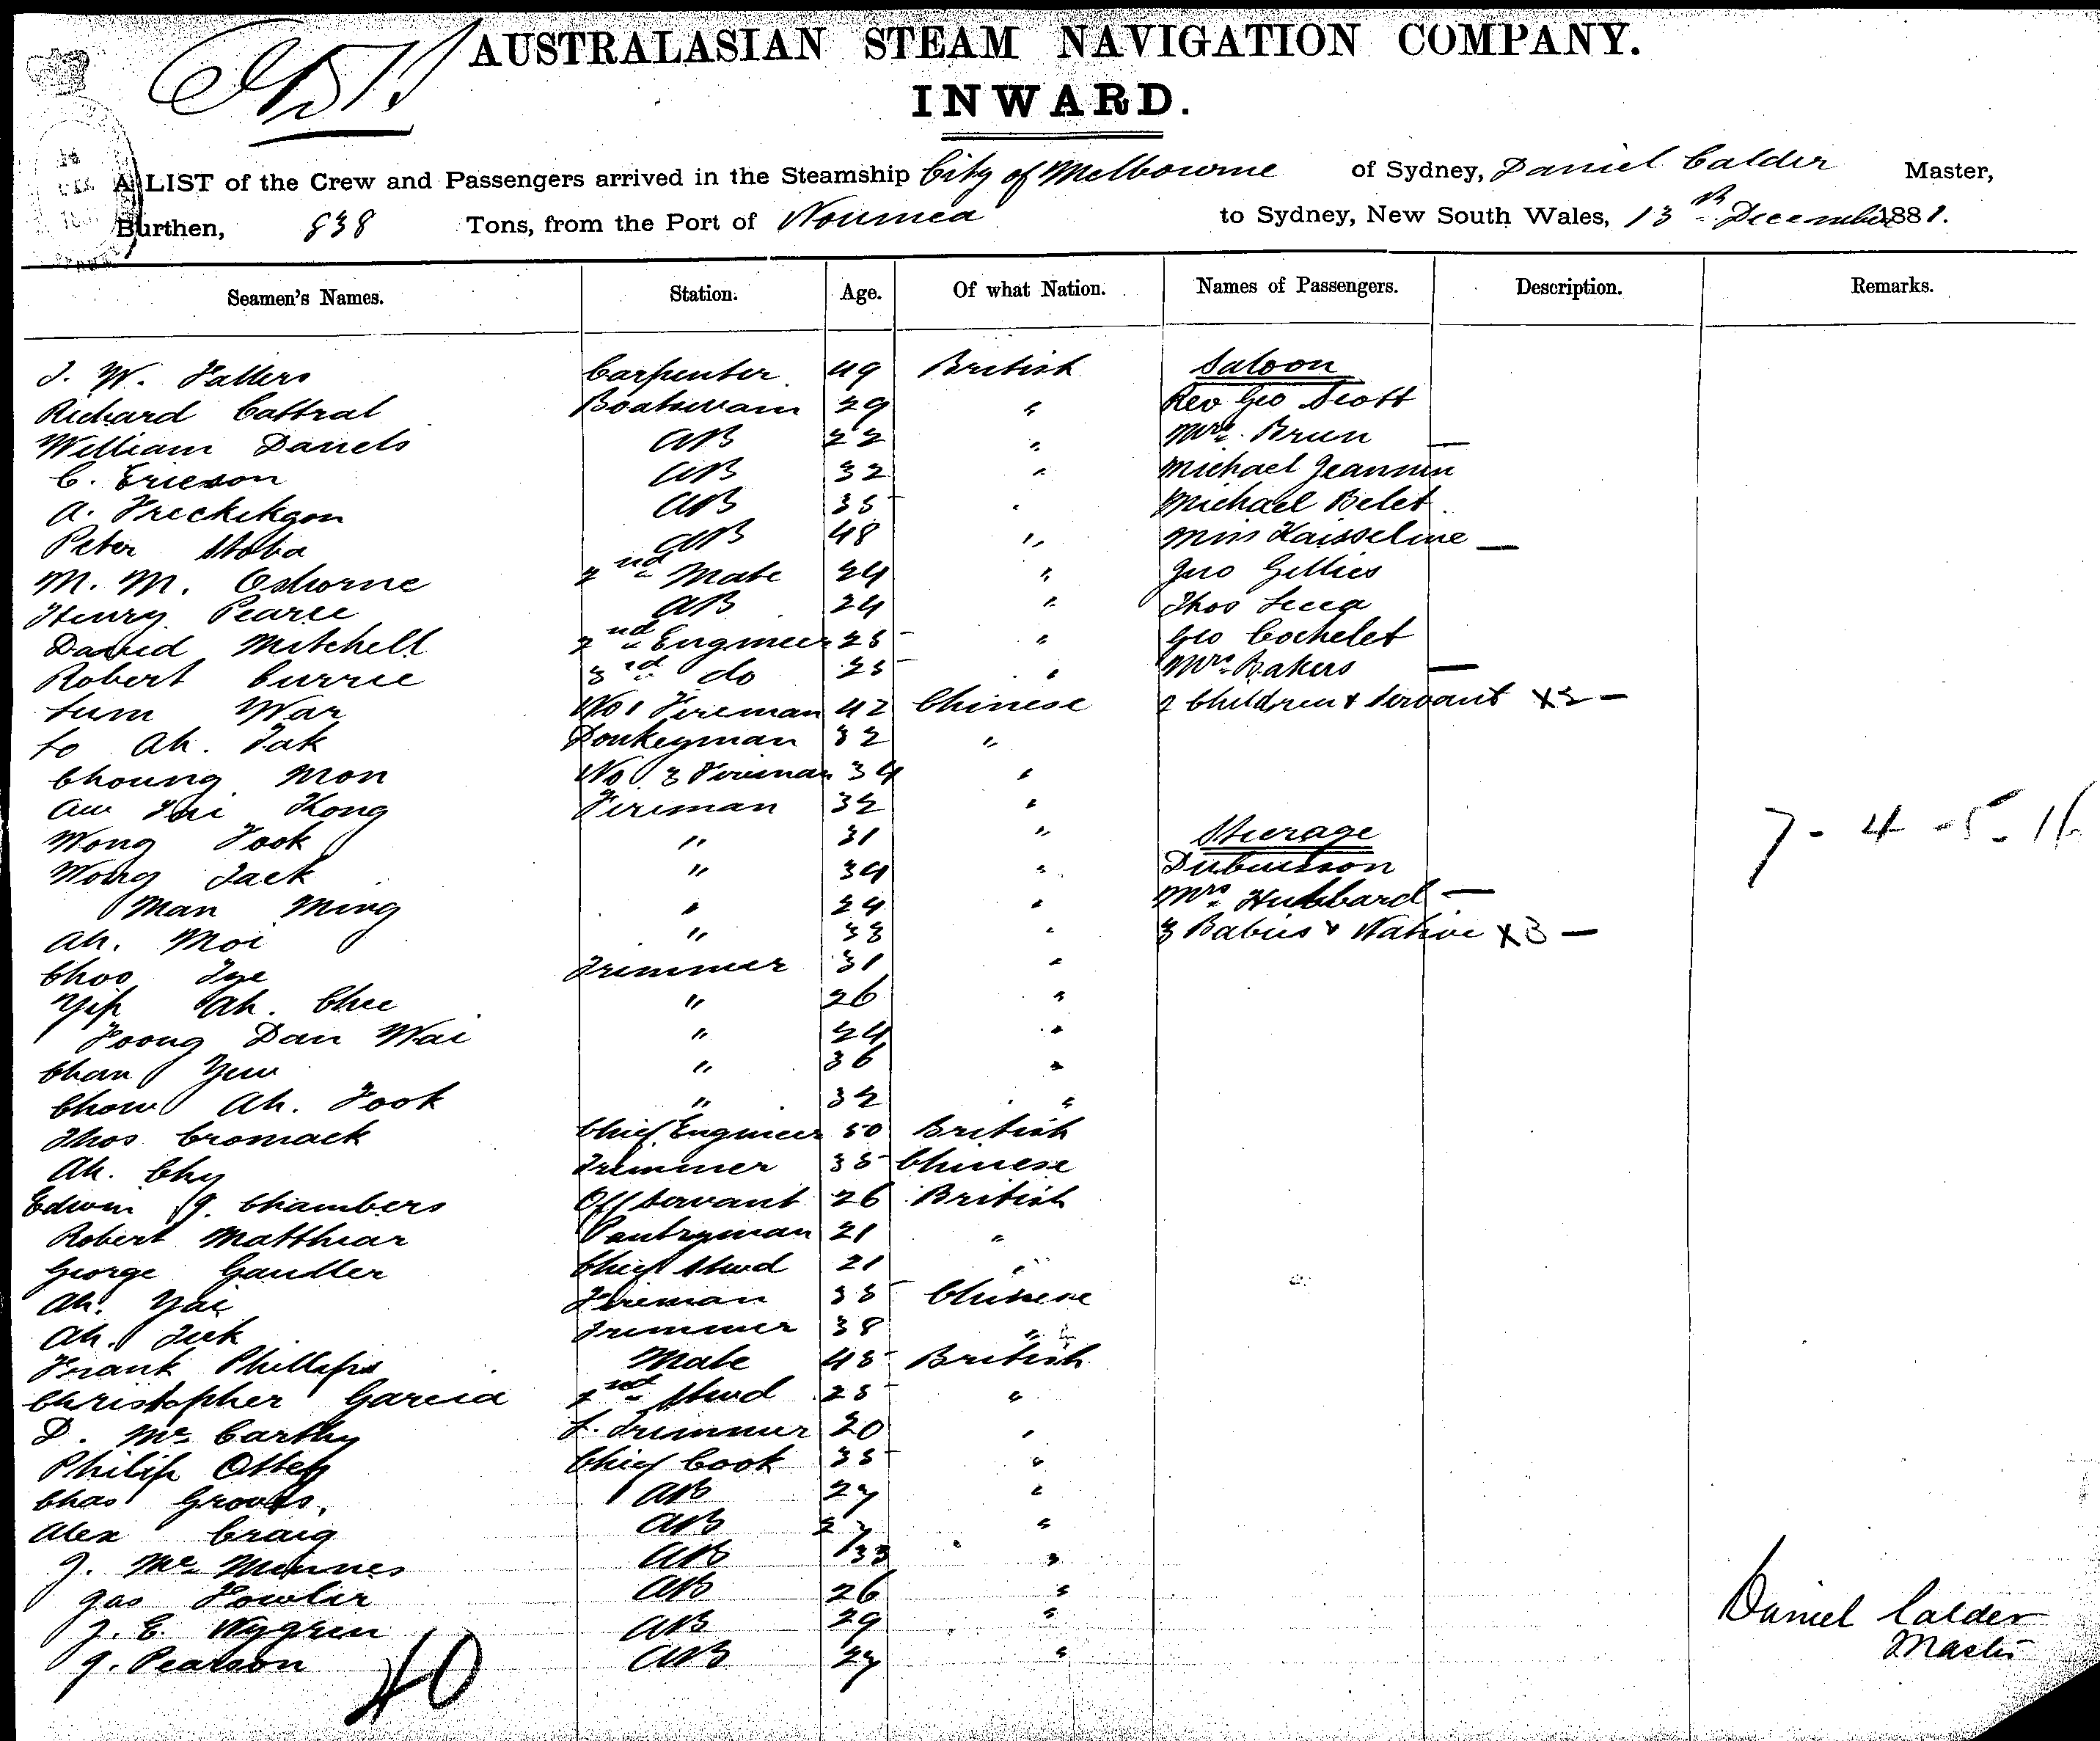 AUSTRALASIAN STEAM NAVIGATION COMPANY.
INWARD.
A LIST of the Crew and Passengers arrived in the Steamship City of Melbourne of Sydney, Daniel Calder Master,
Burthen, 838 Tons, from the Port of Noumea to Sydney, New South Wales, 13th December 1881.
Seamen's Names. Station. Age. Of what Nation. Names of Passengers. Description. Remarks.
J. W. Carpenter 49 British Saloon
Richard Cattral Boatswain 29 " Rev Geo Scott
William Daniels AB 22 " Mrs. Brun —
C. Ericson AB 32 " Michael Jeannin
A. AB 35 " Michael Belet
Peter Stoba AB 48 " Miss Kaisseline —
M. M. Osborne 2nd Mate 24 " Jno Gillies
Henry Pearce AB 24 " Thos
David Mitchell 2nd Engineer 25 " Geo Cochelet
Robert Currie 3rd do 25 " Mrs Bakers —
Lum War No 1 Fireman 42 Chinese 2 Children & Servant X2 —
to Ah. Tak Donkeyman 32 "
Choung Mon No 3 Fireman 34 "
Kong Fireman 32 "
Wong Fook " 31 " Steerage
Wong Jack " 34 " Dubuisson
Man Ming " 24 " Mrs Hubbard —
Ah. Moi " 33 " 3 Babies & Native X3 —
Choo Tye Trimmer 31 "
Yip Ah. Chee " 26 "
Foong Dan Wai " 24 "
Chan Yew " 36 "
Chow Ah. Fook " 32 "
Thos Cromack Chief Engineer 50 British
Ah. Chy Trimmer 35 Chinese
Edwin J. Chambers Off Servant 26 British
Robert Matthiar Pantryman 21 "
George Gaudler Chief Stwd 21 "
Ah. Yai Fireman 35 Chinese
Ah. Trimmer 38 "
Frank Phillips Mate 45 British
Christopher Garcia 2nd Stwd 25 "
D. Mc Carthy L. Trimmer 20 "
Philip Chief Cook 35 "
Chas Groves. AB 27 "
Alex Craig AB 27 "
J. Mc Minnes AB 33 "
Jas Fowler AB 26 "
J. E. Wygren AB 29 "
J. Pearson AB 27 "
40
7 - 4 - 5 - 16
Daniel Calder
Master